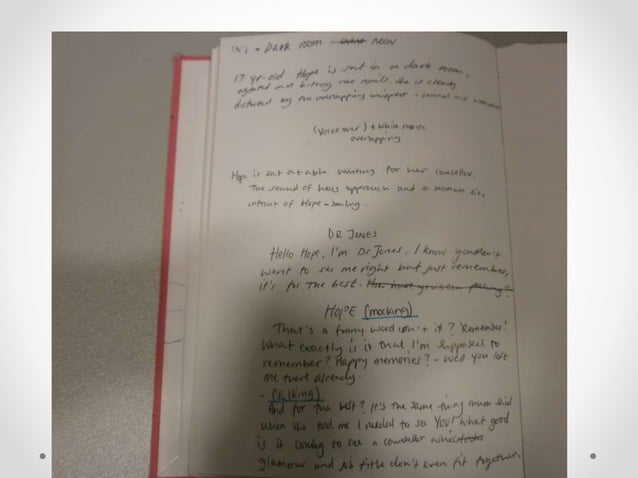 INT • Dark room - NOON
17 yr-old Hope is sat in a dark room,
agitated and biting her nails. She is clearly
disturbed by the overlapping whispers -
(Voice over) + white noise
overlapping
Hope is sat at a table waiting for her counsellor.
The sound of heels approach and a woman sits
infront of Hope - smiling.
DR JONES
Hello Hope, I'm Dr Jones. I know you don't
want to see me right but just remember,
it's for the best. How have you been feeling?
HOPE (mocking)
That's a funny word isn't it? 'Remember!'
What exactly is it that I'm supposed to
remember? Happy memories? - Well you lost
me there already.
- (talking)
And for the best? It's the same thing mum said
when she told me I needed to see YOU! What good
is it coming to see a counsellor
glamour and job title don't even fit together.